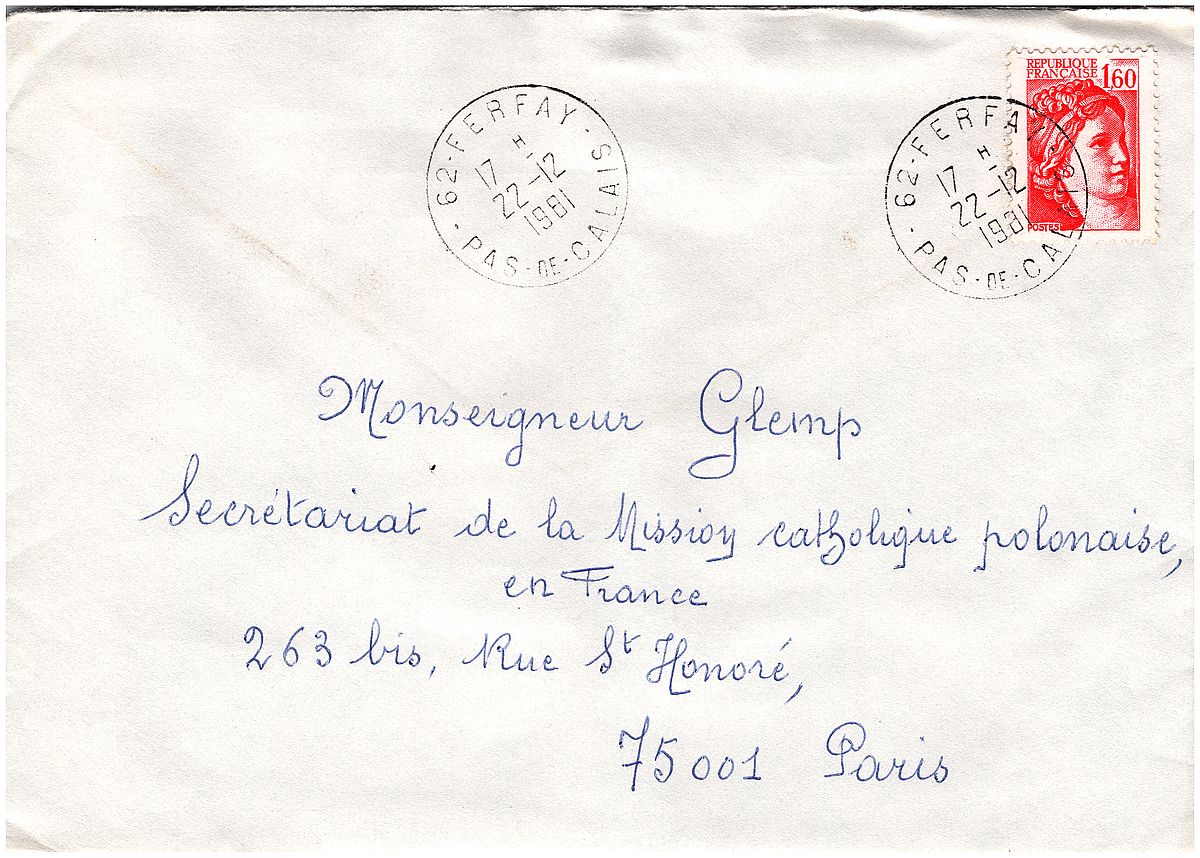 REPUBLIQUE
FRANÇAISE 1,60
POSTES
62-FERFAY-
17 H
22-12
1981
-PAS-DE-CALAIS
62-FERFAY-
17 H
22-12
1981
-PAS-DE-CALAIS
Monseigneur Glemp
Secrétariat de la Mission catholique polonaise,
en France
263 bis, Rue St Honoré,
75001 Paris